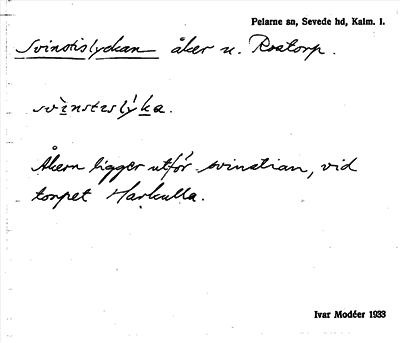 Pelarne sn, Sevede hd, Kalm. l.
Svinstislyckan åker u. Rostorp.
svìnstislýka.
Åkern ligger utför svinstian, vid
torpet Harkulla.
Ivar Modéer 1933